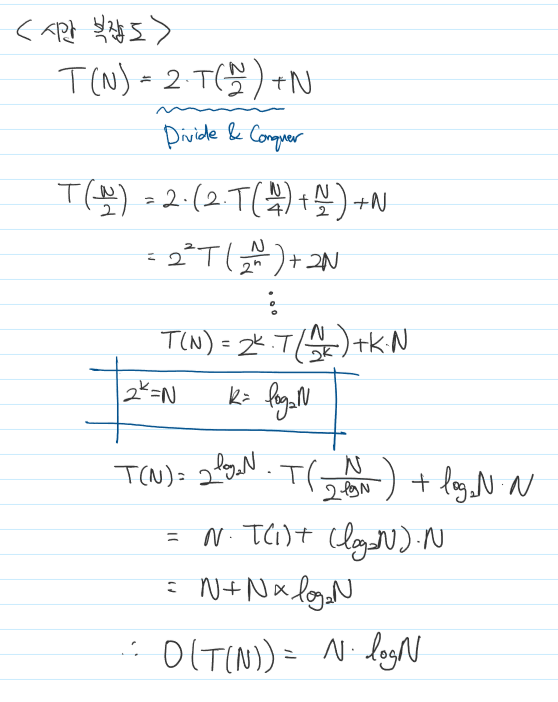 <시간 복잡도>
T(N) = 2·T(N/2) + N
Divide & Conquer
T(N/2) = 2·(2·T(N/4) + N/2) + N
= 2²T(N/2ⁿ) + 2N
⋮
T(N) = 2ᵏ·T(N/2ᵏ) + k·N
2ᵏ=N k= log₂N
T(N) = 2^(log₂N) · T(N/2^(logN)) + log₂N·N
= N·T(1) + (log₂N)·N
= N + N × log₂N
∴ O(T(N)) = N·logN